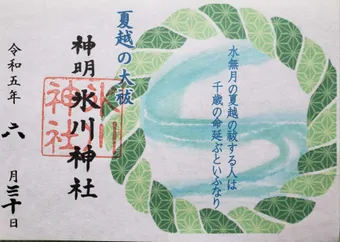 水無月の夏越の祓する人は
千歳の命延ぶといふなり
夏越の大祓
神明氷川神社
氷川
神社
令和五年六月三十日